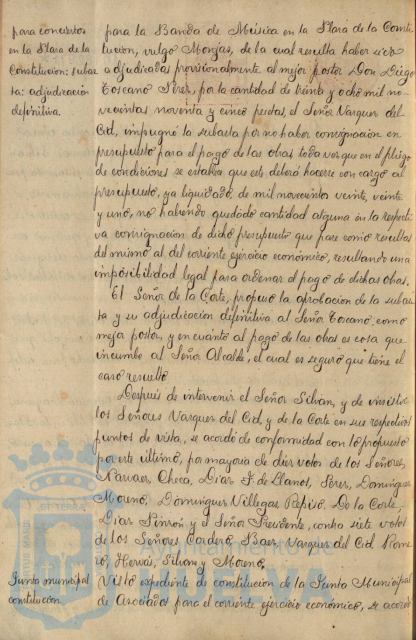 para conciertos
en la Plaza de la
Constitución: subas
ta: adjudicación
definitiva.
para la Banda de Música en la Plaza de la Consti
tución, vulgo Monjas, de la cual resulta haber sido
adjudicadas provisionalmente al mejor postor Don Diego
Toscano Pérez, por la cantidad de treinta y ocho mil no-
vecientas noventa y cinco pesetas, el Señor Vazquez del
Cid, impugnó la subasta por no haber consignación en
presupuesto para el pago de las obras toda vez que en el pliego
de condiciones se estaba que este debía hacerse con cargo al
presupuesto, ya liquidado, de mil novecientos veinte, veinte
y uno, no habiendo quedado cantidad alguna en la respecti
va consignación de dicho presupuesto que pase como resultas
del mismo al del corriente ejercicio económico, resultando una
imposibilidad legal para ordenar el pago de dichas obras.
El Señor de la Corte, propuso la aprobación de la subas
ta y su adjudicación definitiva al Señor Toscano, como
mejor postor, y en cuanto al pago de las obras es cosa que
incumbe al Señor Alcalde, el cual es seguro que tiene el
caso resuelto
Después de intervenir el Señor Silvan, y de insistir
los Señores Vazquez del Cid, y de la Corte en sus respectivos
puntos de vista, se acordó de conformidad con lo propuesto
por este último, por mayoria de diez votos de los Señores,
Narvaez, Checa, Diaz F. de Llanos, Perez, Dominguez
Moreno, Dominguez Villegas, De la Corte,
Diaz Pinzón y el Señor Presidente, contra siete votos
de los Señores Cordero, Baez, Vazquez del Cid, Rome
ro, Hervás, Silvan y Moreno,
Junta municipal
constitución.
Visto expediente de constitución de la Junta Municipal
de Asociados para el corriente ejercicio económico, se acordó
Ayuntamiento de
HUELVA